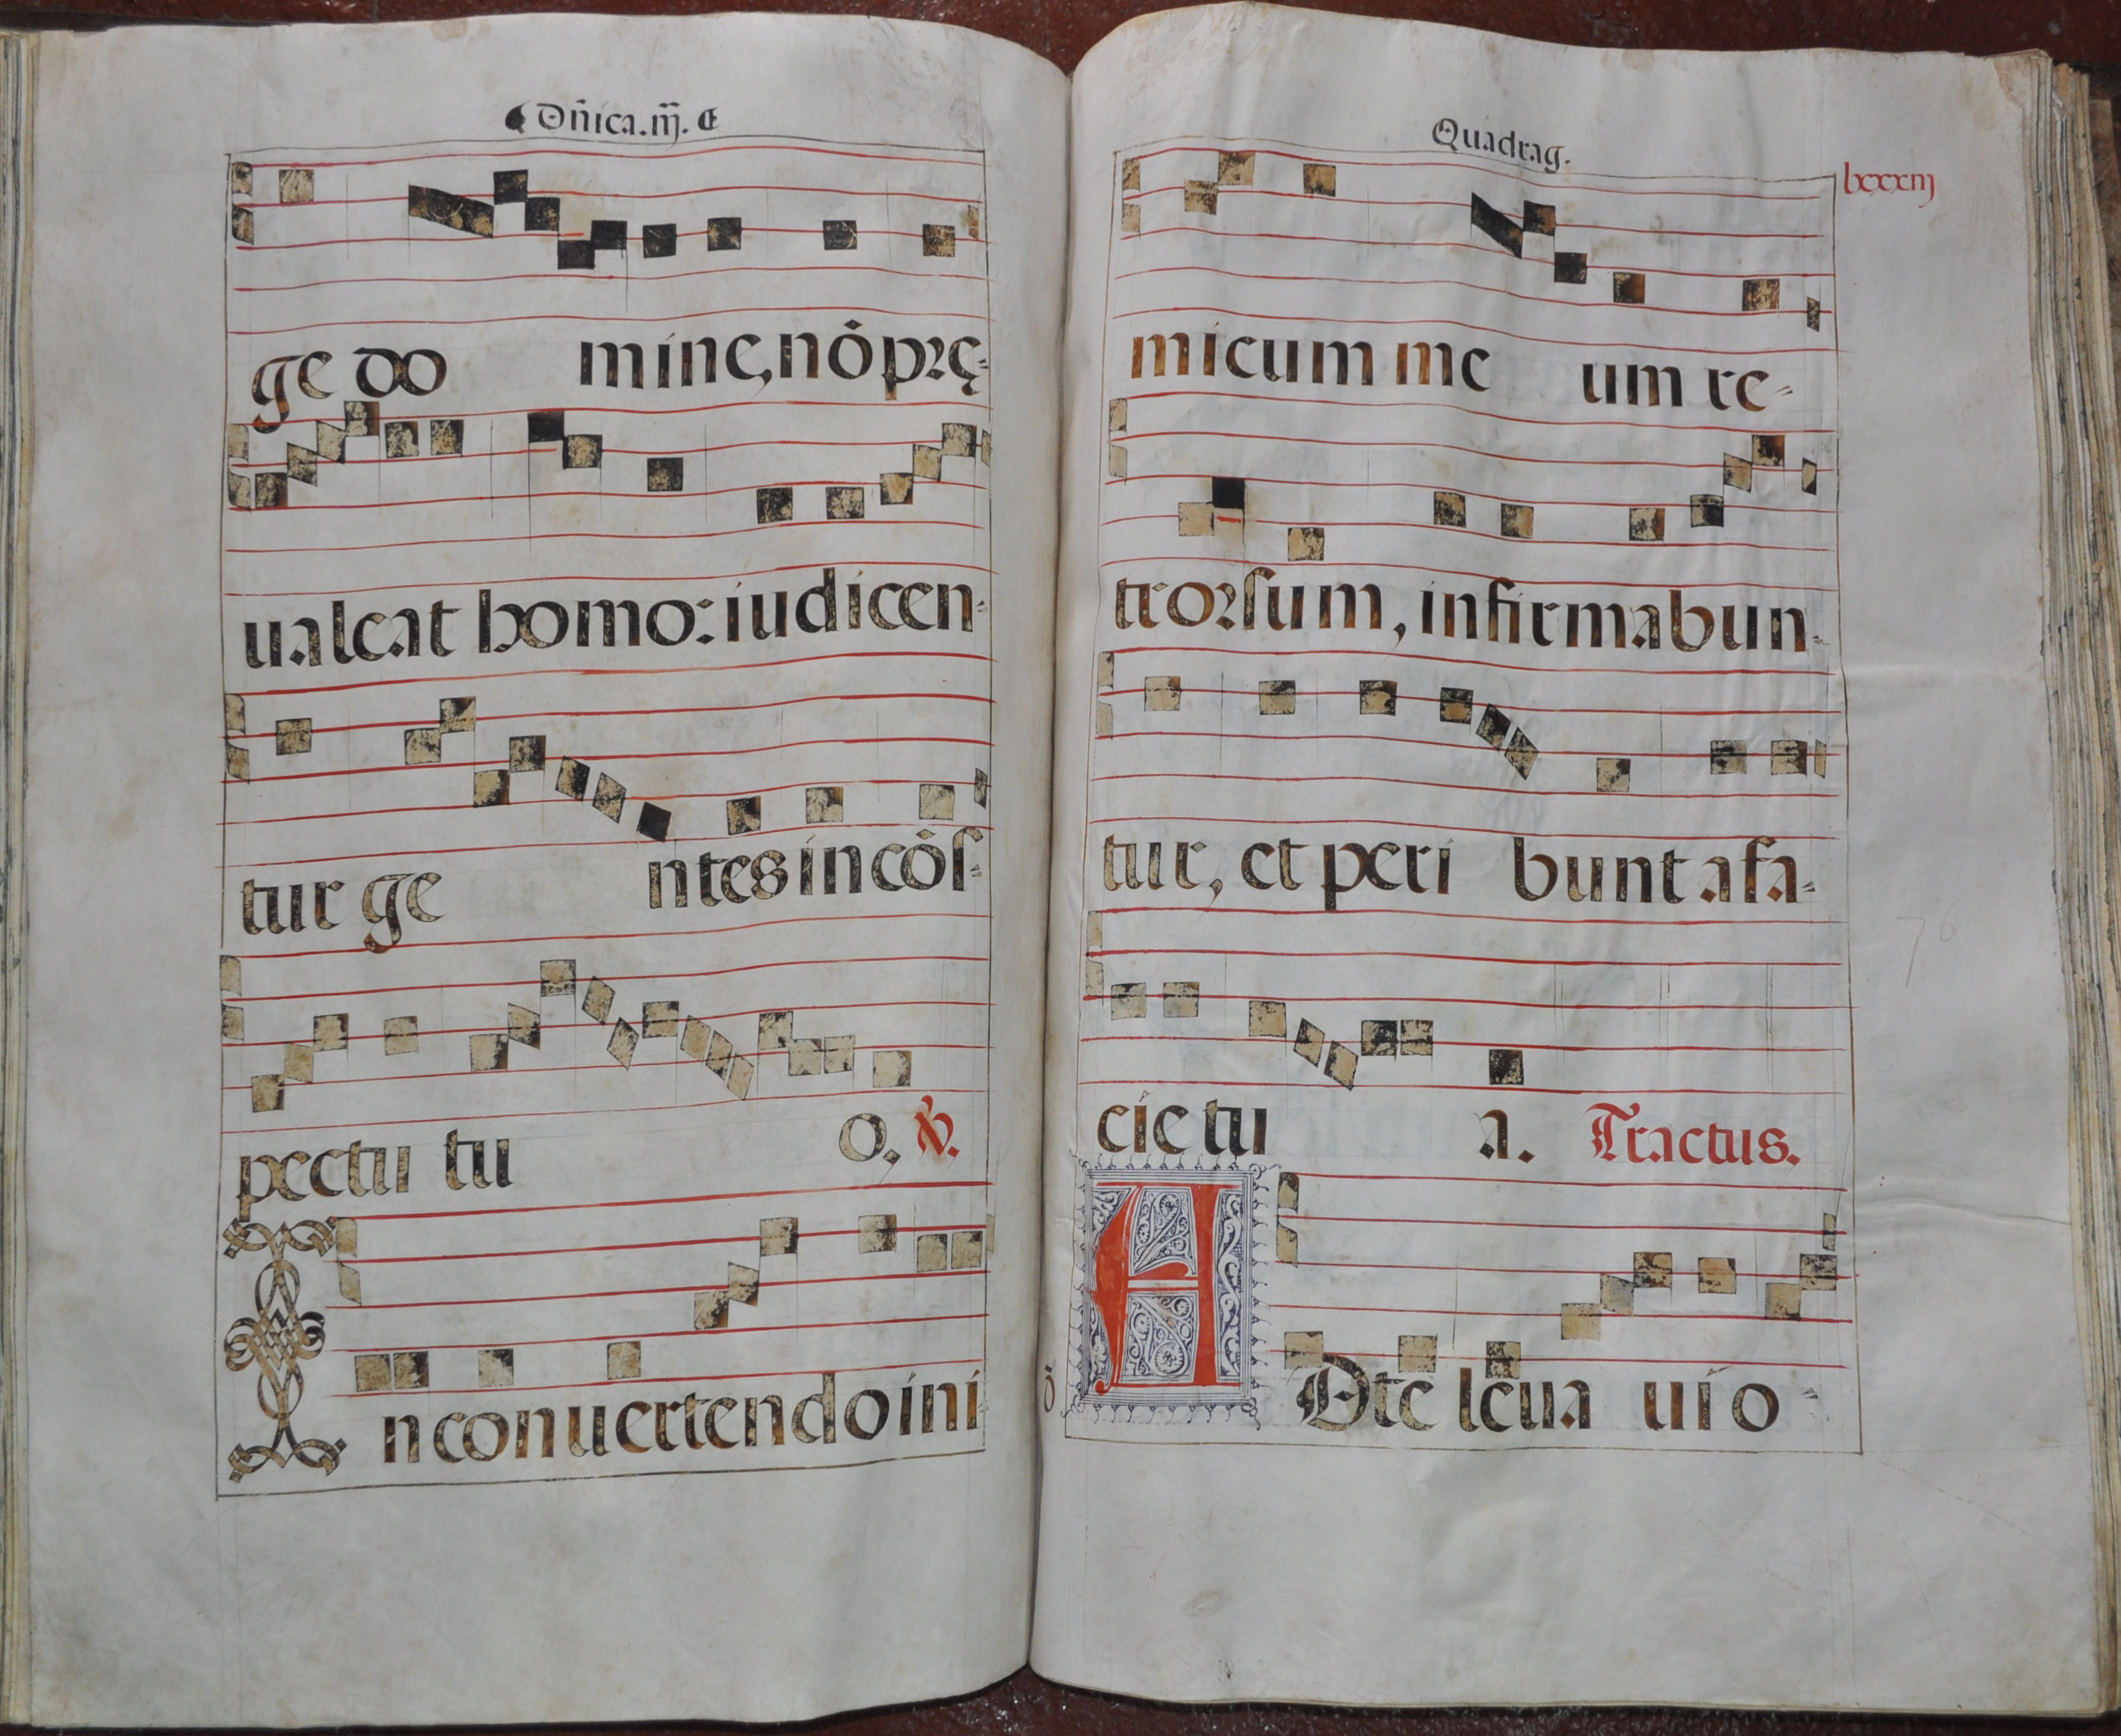 Dñica.iij.
ge do mine, nō prę-
ualeat homo: iudicen-
tur ge ntes in cōs-
pectu tu o, ℣.
In conuertendo ini
Quadrag.
lxxxiij
micum me um re-
trorsum, infirmabun-
tur, et peri bunt a fa-
cie tu a. Tractus.
AD te leua ui o-